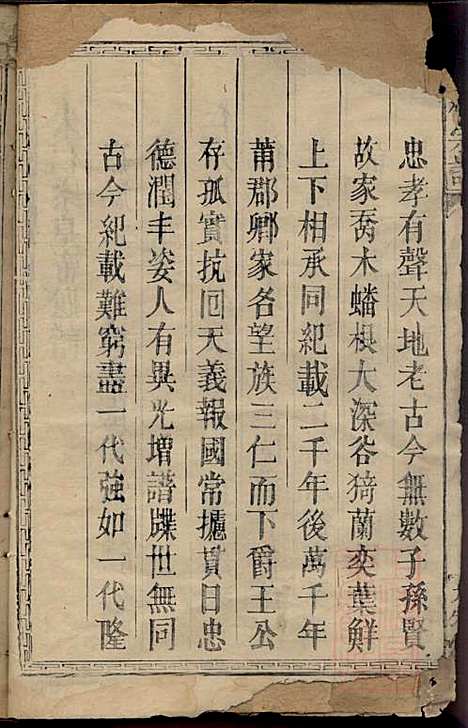 忠孝有聲天地老古今無數子孫賢
故家喬木蟠根大深谷猗蘭奕葉鮮
上下相承同紀載二千年後萬千年
莆郡卿家名望族三仁而下爵王公
存孤實抗回天義報國常攄貫日忠
德潤丰姿人有異光增譜牒世無同
古今紀載難窮盡一代強如一代隆